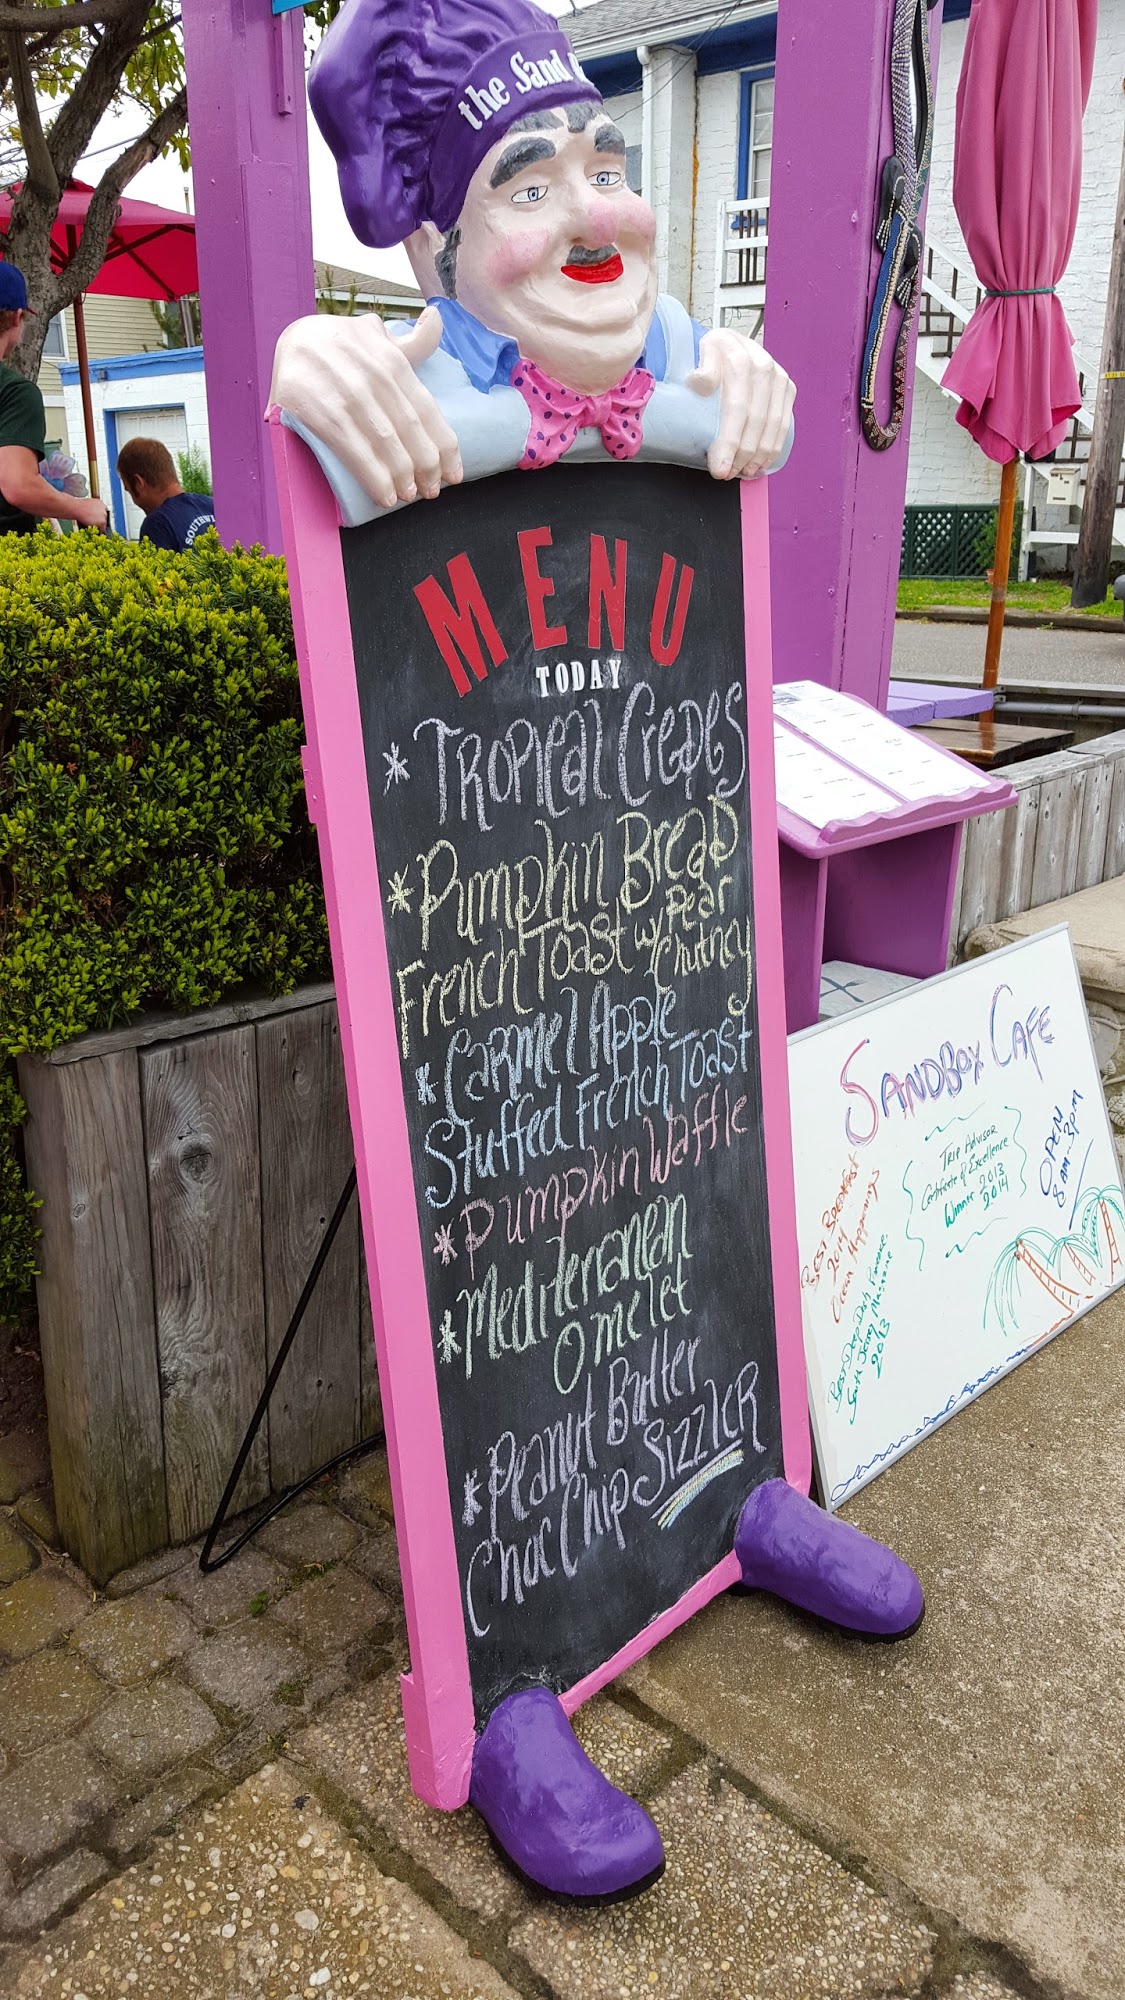 the Sand
SOUTHWI
MENU
TODAY
* TROPICAL CREPES
* PUMPKIN BREAD
FRENCH TOAST w/ PEAR
CHUTNEY
* CARMEL APPLE
STUFFED FRENCH TOAST
* PUMPKIN WAFFLE
* MEDITERRANEAN
OMELET
* PEANUT BUTTER
CHOC CHIP SIZZLER
SANDBOX CAFE
TRIP ADVISOR
Certificate of Excellence
Winner 2013
2014
OPEN
8 AM - 3 PM
BEST BREAKFAST
2014
Ocean Happenings
BEST DEEP DISH PANCAKE
South Jersey Magazine
2013